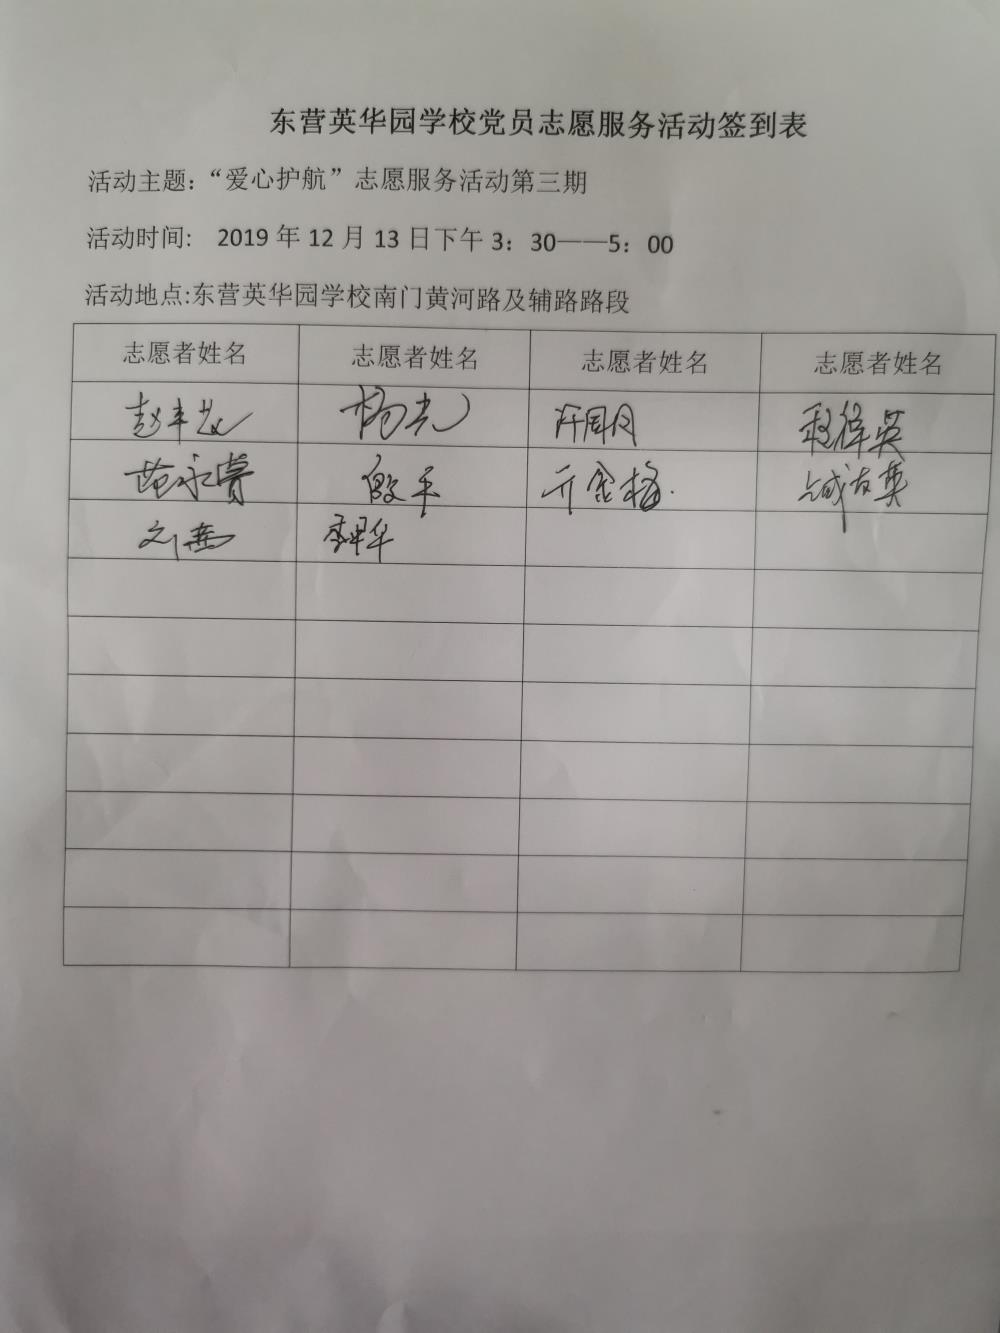 东营英华园学校党员志愿服务活动签到表
活动主题：“爱心护航”志愿服务活动第三期
活动时间： 2019 年 12 月 13 日下午 3：30——5：00
活动地点:东营英华园学校南门黄河路及辅路路段
志愿者姓名 志愿者姓名 志愿者姓名 志愿者姓名
杨光
殷平 亓金梅
刘燕